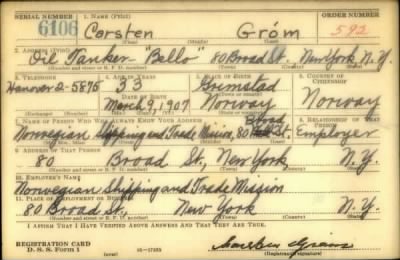 SERIAL NUMBER 1. NAME (Print) ORDER NUMBER
6106 Corsten Gróm 592
(First) (Middle) (Last)
2. ADDRESS (Print)
Oil Tanker - "Bello" 80 Broad St. New York N.Y.
(Number and street or R. F. D. number) (Town) (County) (State)
3. TELEPHONE 4. AGE IN YEARS 5. PLACE OF BIRTH 6. COUNTRY OF CITIZENSHIP
Hanover 2-5875 33 Grimstad
DATE OF BIRTH (Town or county)
March 9, 1907 Norway Norway
(Exchange) (Number) (Mo.) (Day) (Yr.) (State or country)
7. NAME OF PERSON WHO WILL ALWAYS KNOW YOUR ADDRESS 8. RELATIONSHIP OF THAT PERSON
Norwegian Shipping and Trade Mission, 80 Broad St. Employer
9. ADDRESS OF THAT PERSON
80 Broad St., New York N.Y.
(Number and street or R. F. D. number) (Town) (County) (State)
10. EMPLOYER'S NAME
Norwegian Shipping and Trade Mission
11. PLACE OF EMPLOYMENT OR BUSINESS
80 Broad St., New York N.Y.
(Number and street or R. F. D. number) (Town) (County) (State)
I AFFIRM THAT I HAVE VERIFIED ABOVE ANSWERS AND THAT THEY ARE TRUE.
REGISTRATION CARD
D. S. S. Form 1 16-17105
(Registrant's signature)